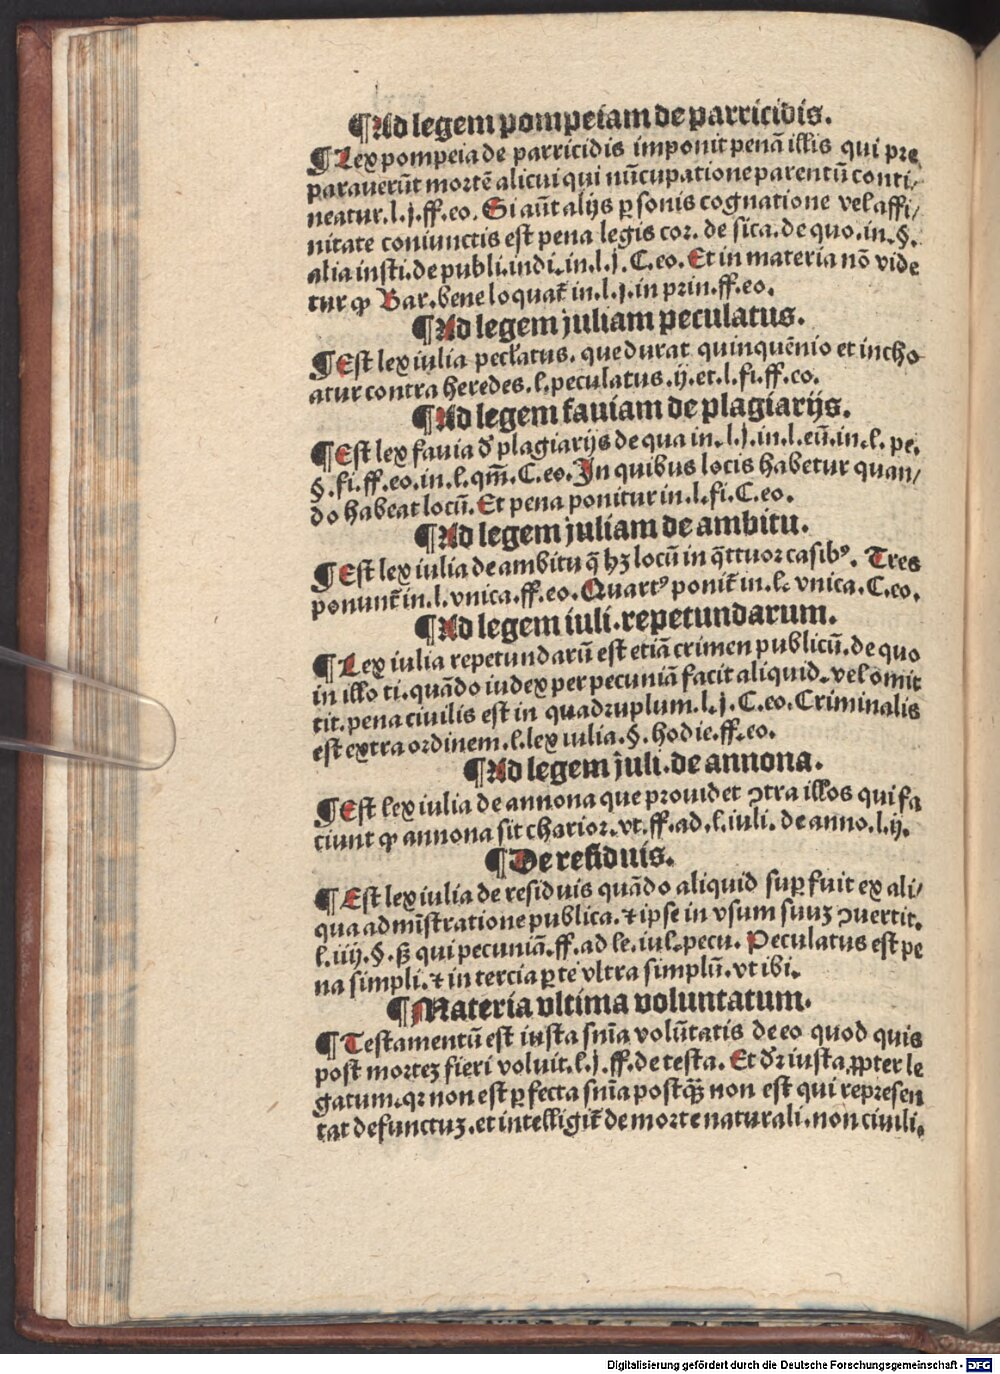 ¶Ad legem pompeiam de parricidis.
¶Lex pompeia de parricidis imponit penā illis qui pre
parauerūt mortē alicui qui nūcupatione parentū conti/
neatur.l.j.ff.eo. Si aūt alijs ꝑsonis cognatione vel affi/
nitate coniunctis est pena legis cor. de sica.de quo.in.§.
alia insti.de publi.indi.in.l.j.C.eo. Et in materia nō vide
tur ꝙ Bar.bene loquat̄ in.l.j.in prin.ff.eo.
¶Ad legem juliam peculatus.
¶Est lex iulia peclatus. que durat quinquēnio et incho
atur contra heredes.l.peculatus.ij.et.l.fi.ff.eo.
¶Ad legem fauiam de plagiarijs.
¶Est lex fauia đ plagiarijs de qua in.l.j.in.l.eū.in.l. pe.
§.fi.ff.eo.in.l.qm̄.C.eo. In quibus locis habetur quan/
do habeat locū. Et pena ponitur in.l.fi.C.eo.
¶Ad legem juliam de ambitu.
¶Est lex iulia de ambitu q̄ hꝫ locū in q̄ttuor casibꝰ. Tres
ponunt̄ in.l.vnica.ff.eo. Quartꝰ ponit̄ in.l. vnica.C.eo.
¶Ad legem iuli.repetundarum.
¶Lex iulia repetundarū est etiā crimen publicū.de quo
in illo ti.quādo iudex per pecuniā facit aliquid.vel omit
tit.pena ciuilis est in quadruplum.l.j.C.eo.Criminalis
est extra ordinem.l.lex iulia.§.hodie.ff.eo.
¶Ad legem juli.de annona.
¶Est lex iulia de annona que prouidet ↄtra illos qui fa
ciunt ꝙ annona sit charior.vt.ff.ad.l.iuli. de anno.l.ij.
¶De residuis.
¶Est lex iulia de residuis quādo aliquid suꝑfuit ex ali/
qua admīstratione publica.⁊ ipse in vsum suuꝫ ↄuertit.
l.iiij.§.ß qui pecuniā.ff.ad le.iul.pecu. Peculatus est pe
na simpli.⁊ in tercia ꝑte vltra simplū.vt ibi.
¶Materia vltima voluntatum.
¶Testamentū est iusta snīa volūtatis de eo quod quis
post morteꝫ fieri voluit.l.j.ff.de testa. Et đr iusta ꝓpter le
gatum.qꝛ non est ꝑfecta snīa postq̄ꝫ non est qui represen
tat defunctuꝫ.et intelligit̄ de morte naturali.non ciuili.
Digitalisierung gefördert durch die Deutsche Forschungsgemeinschaft - DFG